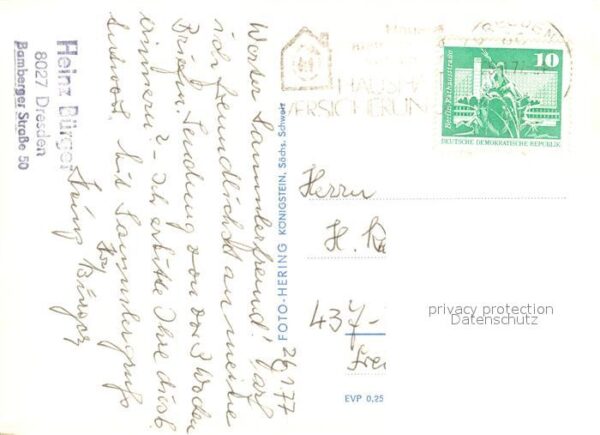 Heinz Bürger
8027 Dresden
Bamberger Straße 50
26.1.77
Werter Sammlerfreund! Darf
ich freundlichst an meine
Briefm. Sendung von vor 3 Wochen
erinnern? - Ich erbitte Ihre diesb.
Antwort. Mit Sammlergruß
Ihr
Heinz Bürger
FOTO-HERING KÖNIGSTEIN, Sächs. Schweiz
EVP 0,25
HAUSHA
VERSICHERUN
10
Berlin, Rathausstraße
DEUTSCHE DEMOKRATISCHE REPUBLIK
Herrn
H.
437-
privacy protection
Datenschutz